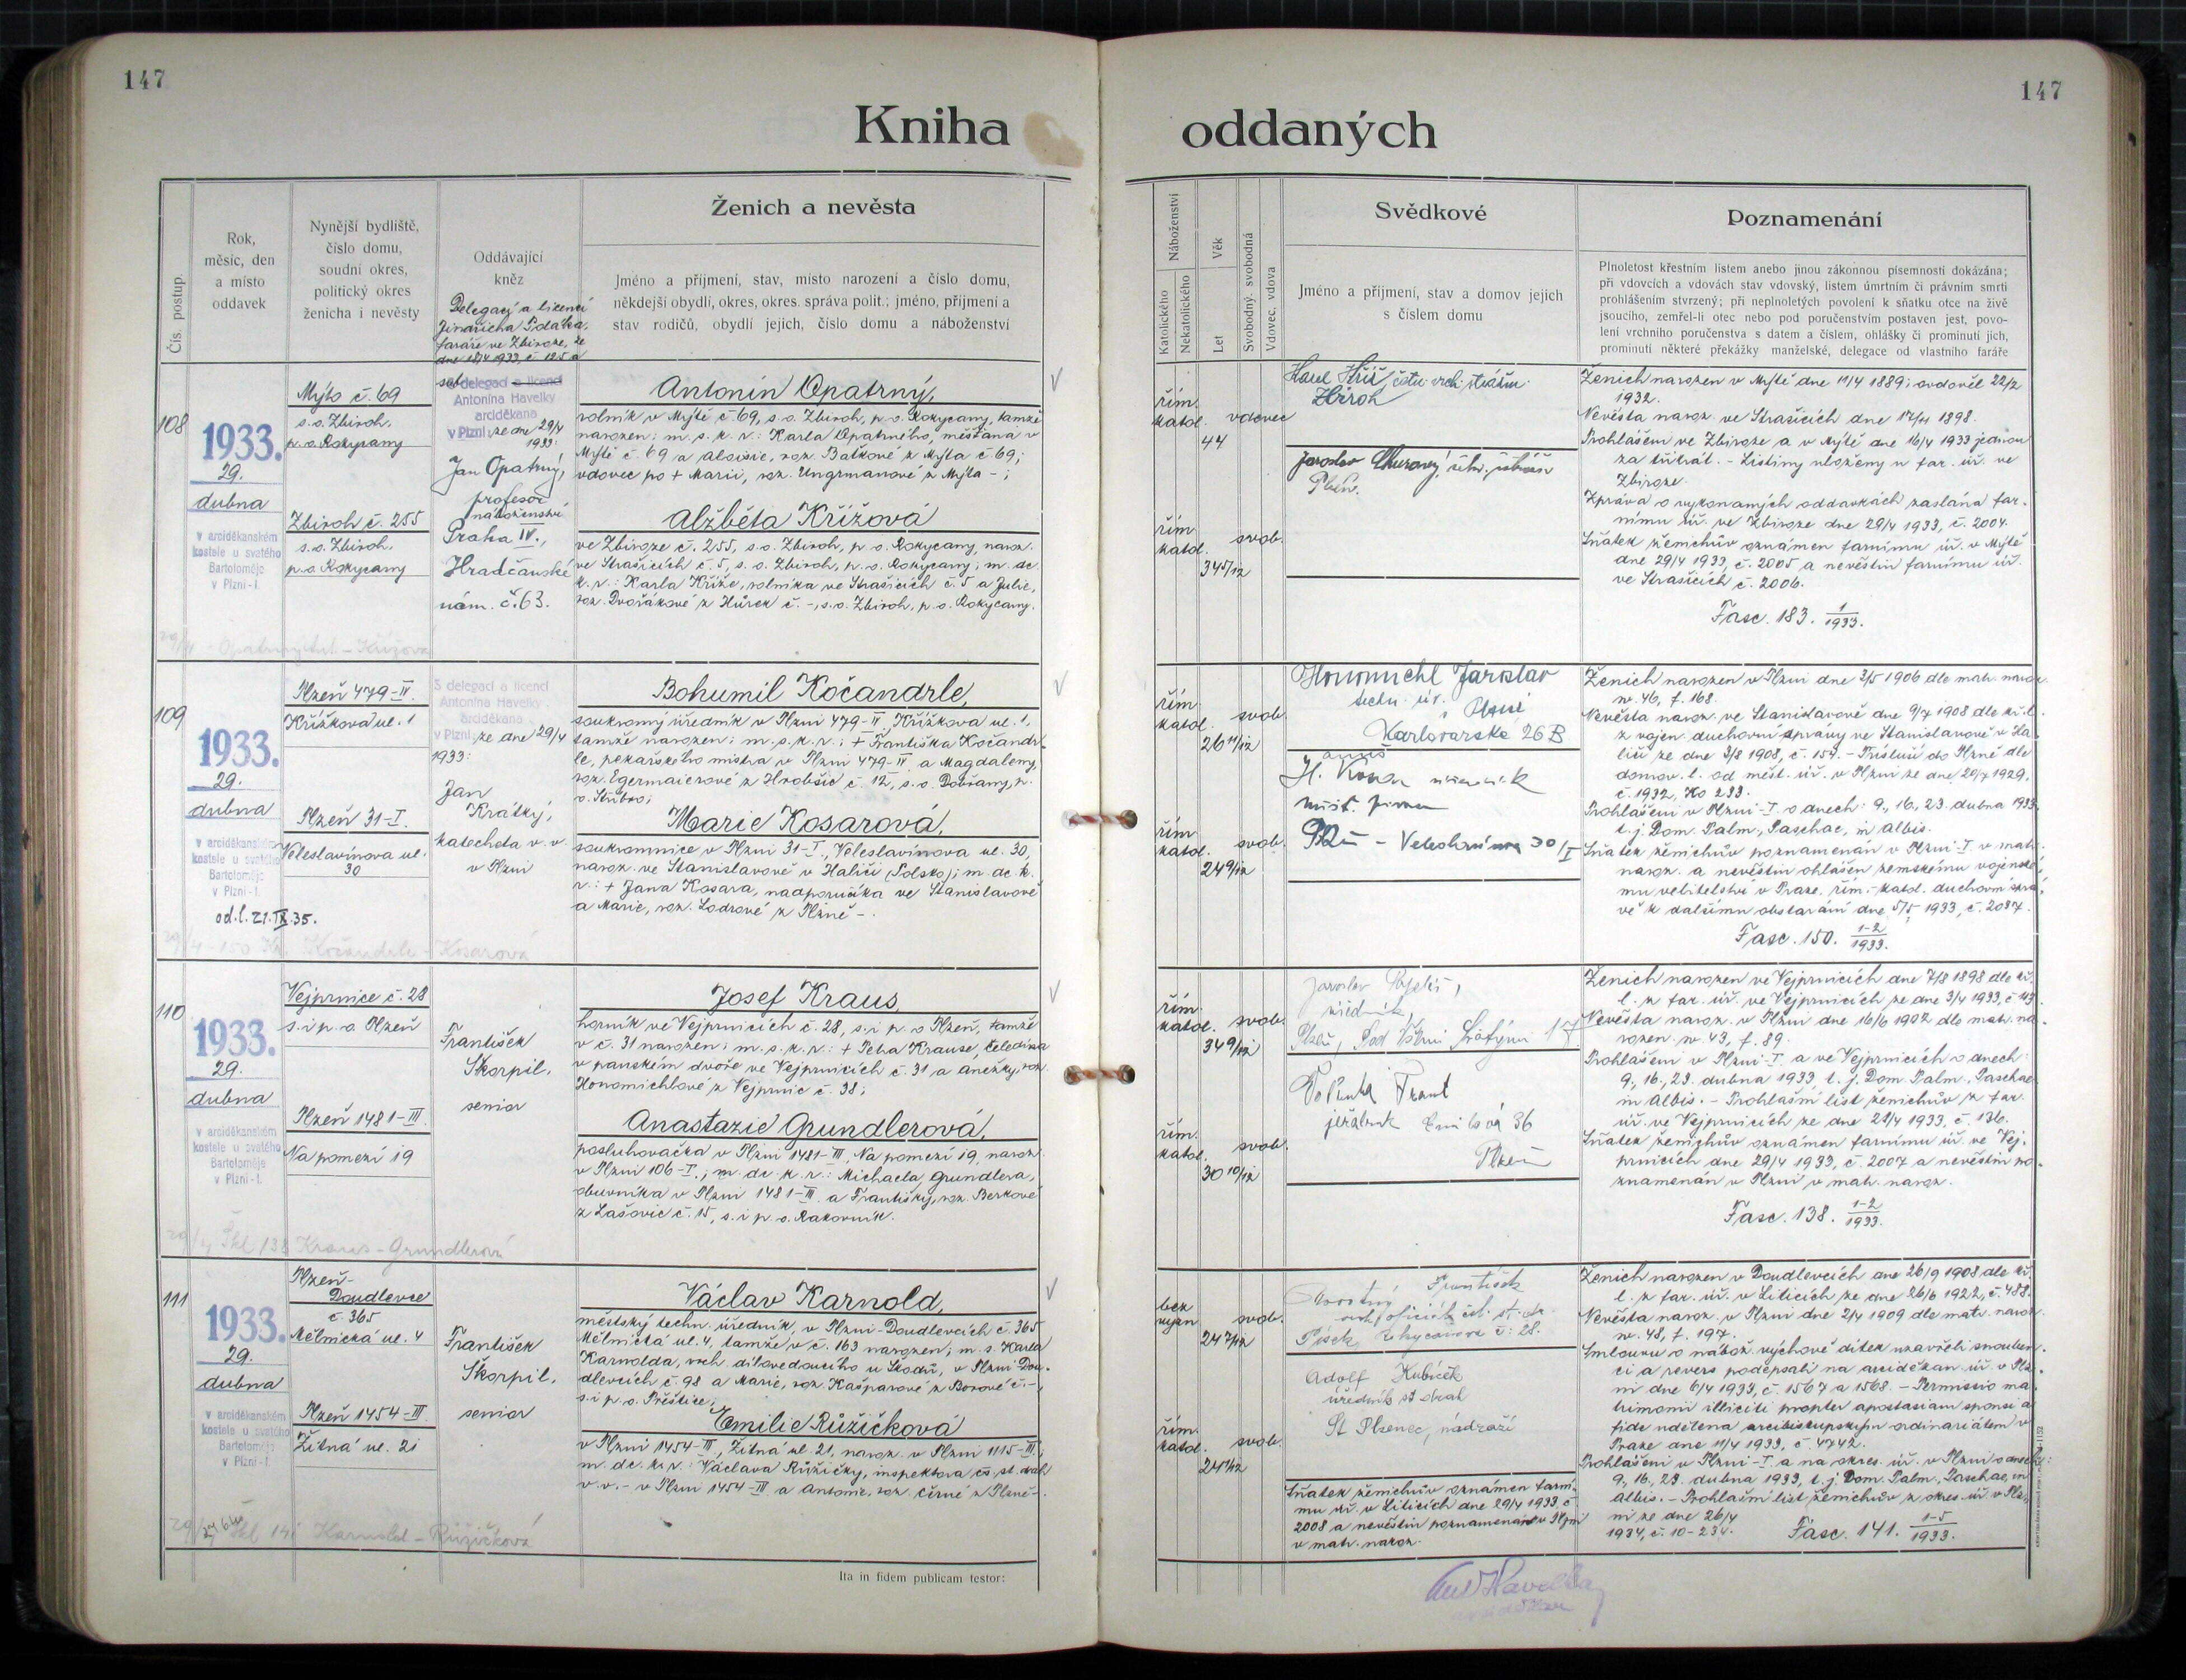 147
147
Kniha
oddaných
Čís. postup.
Rok,
měsíc, den
a místo
oddavek
Nynější bydliště,
číslo domu,
soudní okres,
politický okres
ženicha i nevěsty
Oddávající
kněz
Ženich a nevěsta
Jméno a přijmení, stav, místo narození a číslo domu,
někdejší obydlí, okres, okres. správa polit.; jméno, přijmení a
stav rodičů, obydlí jejich, číslo domu a náboženství
Náboženství
Katolického
Nekatolického
Věk
Let
Svobodný, svobodná
Vdovec, vdova
Svědkové
Jméno a příjmení, stav a domov jejich
s číslem domu
Poznamenání
Plnoletost křestním listem anebo jinou zákonnou písemností dokázána;
při vdovcích a vdovách stav vdovský, listem úmrtním či právním smrti
prohlášením stvrzený; při neplnoletých povolení k sňatku otce na živě
jsoucího, zemřel-li otec nebo pod poručenstvím postaven jest, povo-
lení vrchního poručenstva s datem a číslem, ohlášky či prominutí jich,
prominutí některé překážky manželské, delegace od vlastního faráře
108
1933.
29.
dubna
v arciděkanském
kostele u svatého
Bartoloměje
v Plzni - I.
Mýto č. 69
s. o. Zbiroh,
p. o. Rokycany
Zbiroh č. 255
s. o. Zbiroh,
p. o. Rokycany
Delegací a licencí
Jindřicha
faráře ve Zbiroze, ze
dne 18/4 1933, č. 125 a
sub
delegací a licencí
Antonína Havelky
arciděkana
v Plzni, ze dne 29/4
1933:
Jan Opatrný,
profesor
náboženství
Praha IV.,
Hradčanské
nám. č. 63.
Antonín Opatrný,
rolník v Mýtě č. 69, s. o. Zbiroh, p. o. Rokycany, tamže
narozen; m. s. k. r.: Karla Opatrného, měšťana v
Mýtě č. 69 a Aloisie, roz. Baťkové z Mýta č. 69;
vdovec po + Marii, roz. Ungrmanové z Mýta - ;
Alžběta Křížová
ve Zbiroze č. 255, s. o. Zbiroh, p. o. Rokycany, naroz.
ve Strašicích č. 5, s. o. Zbiroh, p. o. Rokycany; m. dc.
k. r.: Karla Kříže, rolníka ve Strašicích č. 5 a Julie,
roz. Dvořákové z Hůrek č. -, s. o. Zbiroh, p. o. Rokycany.
řím.
katol. vdovec
44
řím.
katol. svob.
34 5/12
Zbiroh
Jaroslav
Plzeň.
Ženich narozen v Mýtě dne 11/4 1889; ovdověl 22/2
1932.
Nevěsta naroz. ve Strašicích dne 17/11 1898.
Prohlášeni ve Zbiroze a v Mýtě dne 16/4 1933 jednou
za třikrát. - Listiny uloženy u far. úř. ve
Zbiroze.
Zpráva o vykonaných oddavkách zaslána far-
nímu úř. ve Zbiroze dne 29/4 1933, č. 2004.
Sňatek ženichův oznámen farnímu úř. v Mýtě
dne 29/4 1933, č. 2005 a nevěstin farnímu úř.
ve Strašicích č. 2006.
Fasc. 183. 1/1933.
109
1933.
29.
dubna
v arciděkanském
kostele u svatého
Bartoloměje
v Plzni - I.
od. l. 21. IX. 35.
Plzeň 479-II.
Křížkova ul. 1
Plzeň 31-I.
Veleslavínova ul.
30
S delegací a licencí
Antonína Havelky
arciděkana
v Plzni, ze dne 29/4
1933:
Jan
Krátký,
katecheta v. v.
v Plzni
Bohumil Kočandrle,
soukromý úředník v Plzni 479-II, Křížkova ul. 1,
tamže narozen; m. s. k. r.: + Františka Kočandr-
le, pekařského mistra v Plzni 479-II a Magdaleny,
roz. Egermaierové z Hrobšic č. 12, s. o. Dobřany, p.
o. Stříbro;
Marie Kosarová,
soukromnice v Plzni 31-I., Veleslavínova ul. 30,
naroz. ve Stanislavově v Haliči (Polsko); m. dc. k.
r.: + Jana Kosara, nadporučíka ve Stanislavově
a Marie, roz. Lodrové z Plzně -.
řím.
katol. svob.
26 11/12
řím.
katol. svob.
24 9/12
Jaroslav
Karlovarská 26 B
30/I
Ženich narozen v Plzni dne 3/5 1906 dle matr. naroz.
sv. 46, f. 168.
Nevěsta naroz. ve Stanislavově dne 9/7 1908 dle kř. l.
z vojen. duchovní správy ve Stanislavově v Ha-
liči ze dne 3/8 1908, č. 154. - Přísluší do Plzně dle
domov. l. od měst. úř. v Plzni ze dne 20/7 1929,
č. 1932, Ho 233.
Prohlášeni v Plzni-I. o dnech: 9., 16., 23. dubna 1933
t. j. Dom. Palm., Paschae, in Albis.
Sňatek ženichův poznamenán v Plzni-I. v matr.
naroz. a nevěstin ohlášen zemskému vojenské-
mu velitelství v Praze, řím.-katol. duchovní sprá-
vě k dalšímu obstarání dne 5/5 1933, č. 2087.
Fasc. 150. 1-2/1933.
110
1933.
29.
dubna
v arciděkanském
kostele u svatého
Bartoloměje
v Plzni - I.
Vejprnice č. 28
s. i p. o. Plzeň
Plzeň 1481-III.
Na pomezí 19
František
Škorpil,
senior
Josef Kraus,
horník ve Vejprnicích č. 28, s. i p. o. Plzeň, tamže
v č. 31 narozen; m. s. k. r.: + Petra Krause, čeledína
v panském dvoře ve Vejprnicích č. 31 a Anežky, roz.
Honomichlové z Vejprnic č. 38;
Anastazie Grundlerová,
posluhovačka v Plzni 1481-III, Na pomezí 19, naroz.
v Plzni 106-I.; m. dc. k. r.: Michaela Grundlera,
obuvníka v Plzni 1481-III. a Františky, roz. Berkové
z Lašovic č. 15, s. i p. o. Rakovník.
řím.
katol. svob.
34 9/12
řím.
katol. svob.
30 10/12
Jaroslav
úředník,
Plzeň, Pod Všemi Svatými 17
jeřábník Emilova 36
Plzeň
Ženich narozen ve Vejprnicích dne 7/8 1898 dle kř.
l. z far. úř. ve Vejprnicích ze dne 3/4 1933, č. 113.
Nevěsta naroz. v Plzni dne 16/6 1902 dle matr. na-
rozen. sv. 43, f. 89.
Prohlášeni v Plzni-I. a ve Vejprnicích o dnech:
9., 16., 23. dubna 1933 t. j. Dom. Palm., Paschae,
in Albis. - Prohlašní list ženichův z far.
úř. ve Vejprnicích ze dne 24/4 1933, č. 136.
Sňatek ženichův oznámen farnímu úř. ve Vej-
prnicích dne 29/4 1933, č. 2007 a nevěstin po-
znamenán v Plzni v matr. naroz.
Fasc. 138. 1-2/1933.
Kraus - Grundlerová
111
1933.
29.
dubna
v arciděkanském
kostele u svatého
Bartoloměje
v Plzni - I.
Plzeň-
Doudlevce
č. 365
Mělnická ul. 4
Plzeň 1454-III.
Žitná ul. 21
František
Škorpil,
senior
Václav Karnold,
městský techn. úředník, v Plzni-Doudlevcích č. 365
Mělnická ul. 4, tamže v č. 163 narozen; m. s. Karla
Karnolda, vrch. dílovedoucího u Škodů, v Plzni-Dou-
dlevcích č. 98 a Marie, roz. Kašparové z Borové č. -,
s. i p. o. Přeštice;
Emilie Růžičková
v Plzni 1454-III., Žitná ul. 21, naroz. v Plzni 1115-III.;
m. dc. k. r.: Václava Růžičky, inspektora čs. st. drah
v. v. - v Plzni 1454-III a Antonie, roz. Černé z Plzně -.
Karnold - Růžičková
bez
vyzn. svob.
24 7/12
řím.
katol. svob.
24 1/12
František
Písek
Adolf Kubíček
úředník st drah
St Plzenec, nádraží
Sňatek ženichův oznámen farní-
mu úř. v Liticích dne 29/4 1933 č.
2008 a nevěstin poznamenán v Plzni
v matr. naroz.
Ženich narozen v Doudlevcích dne 26/9 1908 dle kř.
l. z far. úř. v Liticích ze dne 26/6 1922, č. 488.
Nevěsta naroz. v Plzni dne 2/4 1909 dle matr. naroz.
sv. 48, f. 197.
Smlouvu o nábož. výchově dítek uzavřeli snouben-
ci a revers podepsali na arciděkan. úř. v Plz-
ni dne 6/4 1933, č. 1567 a 1568. - Permissio ma-
trimonii illiciti propter apostasiam sponsi a
fide udělena arcibiskupským ordinariátem v
Praze dne 11/4 1933, č. 4742.
Prohlášeni v Plzni-I. a na okres. úř. v Plzni o dnech:
9., 16., 23. dubna 1933, t. j. Dom. Palm., Paschae, in
Albis. - Prohlašní list ženichův z okres. úř. v Plz-
ni ze dne 26/4
1934, č. 10-234. Fasc. 141. 1-5/1933.
Ita in fidem publicam testor:
Ant Havelka